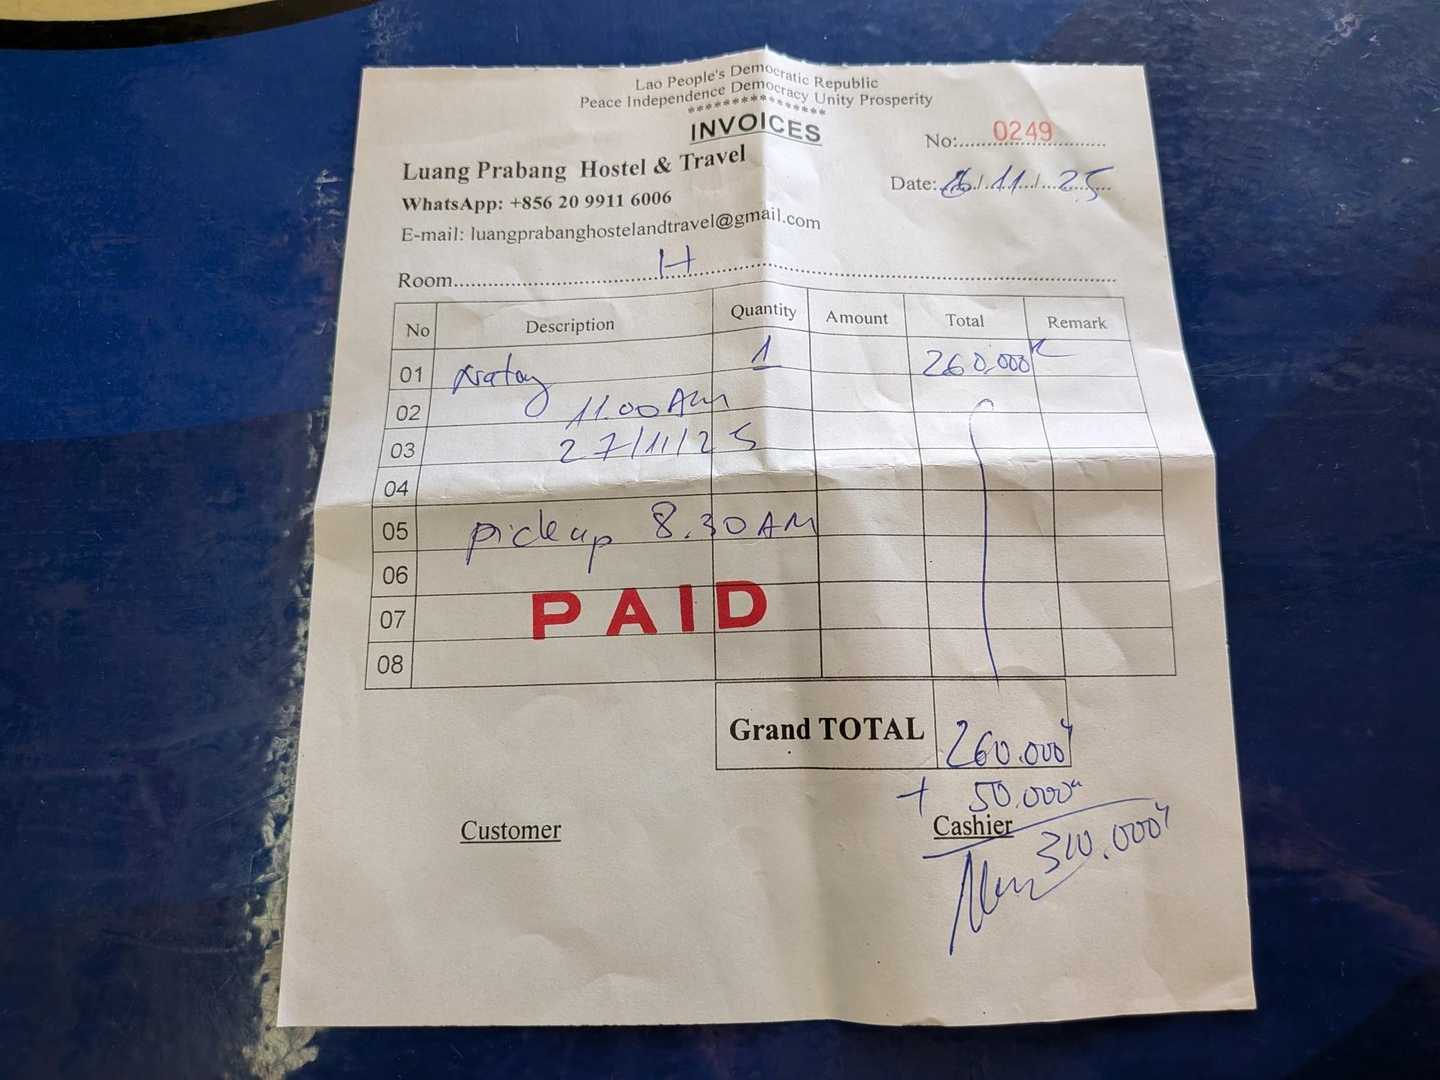 Lao People's Democratic Republic
Peace Independence Democracy Unity Prosperity
****************
INVOICES
No: 0249
Luang Prabang Hostel & Travel
Date: /11/25
WhatsApp: +856 20 9911 6006
E-mail: luangprabanghostelandtravel@gmail.com
Room H
No Description Quantity Amount Total Remark
01 1 260.000K
02 11.00 AM
03 27/11/25
04
05 pick up 8.30 AM
06
07 PAID
08
Grand TOTAL 260.000K
+ 50.000K
Customer Cashier
310.000K